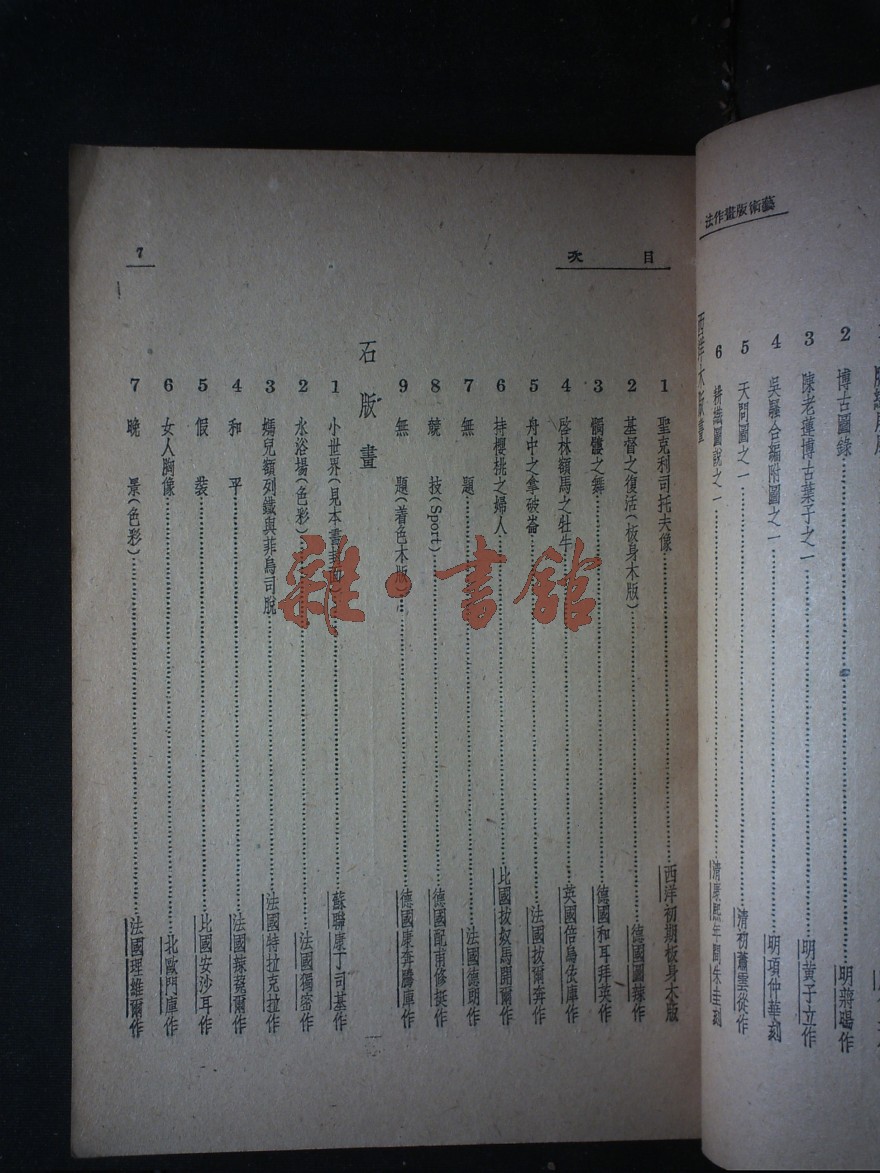 藝術版畫作法
2 博古圖錄……明蔣暘作
3 陳老蓮博古葉子之一……明黃子立作
4 吳騷合編附圖之一……明項仲華刻
5 天問圖之一……清初蕭雲從作
6 耕織圖說之一……清康熙年間朱圭刻
西洋木版畫
目次 7
1 聖克利司托夫像……西洋初期板身木版
2 基督之復活(板身木版)……德國圖辣作
3 髑髏之舞……德國和耳拜英作
4 啓林額馬之牡牛……英國倍烏依庫作
5 舟中之拿破崙……法國拔爾奔作
6 持櫻桃之婦人……比國拔奴馬開爾作
7 無題……法國德朗作
8 競技(Sport)……德國配甫修挺作
9 無題(着色木版)……德國康奔騰庫作
石版畫
1 小世界(見本書)……蘇聯康丁司基作
2 水浴場(色彩)……法國獨密作
3 媽兒額列鐵與菲烏司脫……法國特拉克拉作
4 和平……法國辣蕘爾作
5 假裝……比國安沙耳作
6 女人胸像……北歐門庫作
7 晚景(色彩)……法國理維爾作
雜·書館